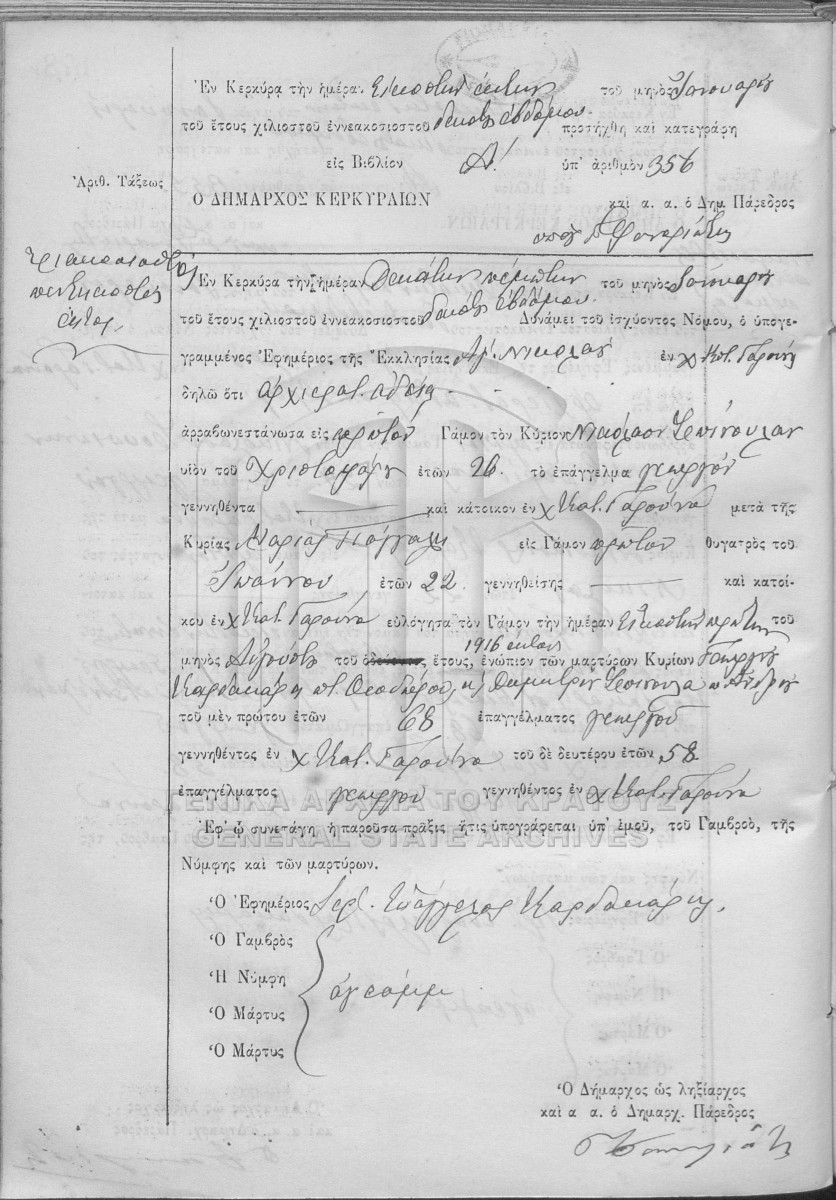 Ἐν Κερκύρᾳ τὴν ἡμέραν Εἰκοστὴν ἕκτην τοῦ μηνὸς Ἰανουαρίου
τοῦ ἔτους χιλιοστοῦ ἐννεακοσιοστοῦ δεκάτου ἑβδόμου προσήχθη καὶ κατεγράφη
εἰς Βιβλίον Α! ὑπ' ἀριθμὸν 356
Ἀριθ. Τάξεως
Ο ΔΗΜΑΡΧΟΣ ΚΕΡΚΥΡΑΙΩΝ καὶ α. α. ὁ Δημ. Πάρεδρος
τριακοσιοστὸς
πεντηκοστὸς
ἕκτος.
Ἐν Κερκύρᾳ τὴν ἡμέραν Δεκάτην πέμπτην τοῦ μηνὸς Ἰανουαρίου
τοῦ ἔτους χιλιοστοῦ ἐννεακοσιοστοῦ δεκάτου ἑβδόμου Δυνάμει τοῦ ἰσχύοντος Νόμου, ὁ ὑπογε-
γραμμένος Ἐφημέριος τῆς Ἐκκλησίας Ἁγ. Νικολάου ἐν χ Κατ. Γαρούνα
δηλῶ ὅτι ἀρχιερατ. ἀδείᾳ
ἀρραβωνεστάνωσα εἰς πρῶτον Γάμον τὸν Κύριον Νικόλαον Σπίνουλαν
υἱὸν τοῦ Χριστοφόρου ἐτῶν 26 τὸ ἐπάγγελμα γεωργὸν
γεννηθέντα καὶ κάτοικον ἐν χ Κατ. Γαρούνα μετὰ τῆς
Κυρίας Μαρίας εἰς Γάμον πρῶτον θυγατρὸς τοῦ
Ἰωάννου ἐτῶν 22 γεννηθείσης καὶ κατοί-
κου ἐν χ Κατ. Γαρούνα εὐλόγησα τὸν Γάμον τὴν ἡμέραν Εἰκοστὴν πρώτην τοῦ
μηνὸς Αὐγούστου τοῦ 1916 ἔτους, ἐνώπιον τῶν μαρτύρων Κυρίων Γεωργίου
Καρδακάρη π. Θεοδώρου, κ Δημητρίου Σπίνουλα
τοῦ μὲν πρώτου ἐτῶν 68 ἐπαγγέλματος γεωργοῦ
γεννηθέντος ἐν χ Κατ. Γαρούνα τοῦ δὲ δευτέρου ἐτῶν 58
ἐπαγγέλματος γεωργοῦ γεννηθέντος ἐν χ Κατ. Γαρούνα
ΓΕΝΙΚΑ ΑΡΧΕΙΑ ΤΟΥ ΚΡΑΤΟΥΣ
Ἐφ' ᾧ συνετάγη ἡ παροῦσα πρᾶξις ἥτις ὑπογράφεται ὑπ' ἐμοῦ, τοῦ Γαμβροῦ, τῆς
GENERAL STATE ARCHIVES
Νύμφης καὶ τῶν μαρτύρων.
Ὁ Ἐφημέριος Ἱερ. Εὐάγγελος Καρδακάρης
Ὁ Γαμβρὸς
Ἡ Νύμφη
ἀγράμμ
Ὁ Μάρτυς
Ὁ Μάρτυς
Ὁ Δήμαρχος ὡς ληξίαρχος
καὶ α α. ὁ Δημαρχ. Πάρεδρος